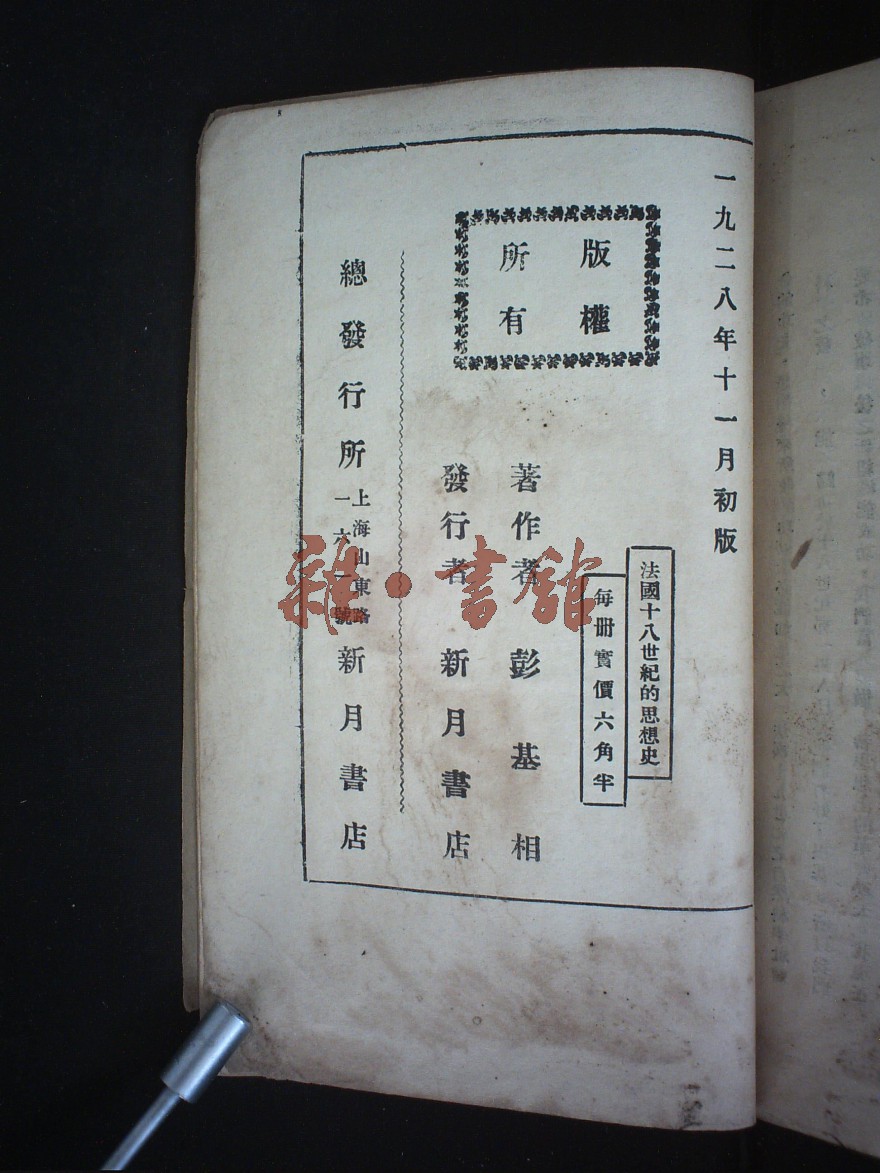 一九二八年十一月初版
法國十八世紀的思想史
每册實價六角半
版權
所有
著作者 彭基相
發行者 新月書店
總發行所 上海山東路
一六一號 新月書店
雜·書館